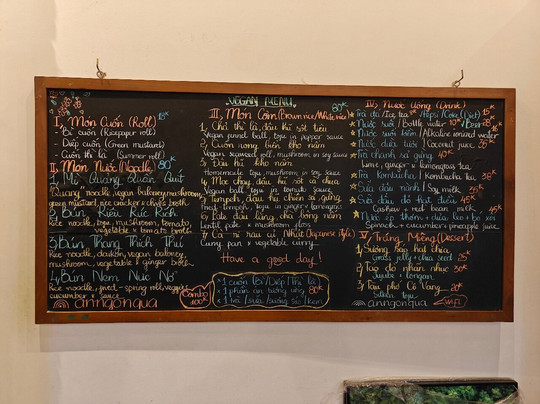 VEGAN MENU
I, Món Cuốn (Roll) 18K
- Bì cuốn (Ricepaper roll)
- Diếp cuốn (Green mustards)
- Cuốn thì là (Summer roll)
II, Món Nước (Noodle) 80K
1, Mỳ Quảng Quán Quít
Quang noodle, vegan baloney, mushroom,
green mustard, rice cracker & chive broth.
2, Bún Riêu Rúc Rích
Rice noodle, tofu, mushroom, tomato,
vegetable & tomato broth.
3, Bún Thang Thích Thú
Rice noodle, daikon, vegan baloney,
mushroom, vegetable & ginger broth.
4, Bún Nem Núc Nở
Rice noodle, fried-spring roll, veggie,
cucumber & sauce.
anngonqua
III, Món Cơm (Brown rice/White rice) 80K
1, Chả thì là, đậu hũ sốt tiêu
Vegan funnel ball, tofu in pepper sauce
2, Cuốn rong biển kho nấm
Vegan seaweed roll, mushroom in soy sauce
3, Đậu hũ kho nấm
Homemade tofu, mushroom in soy sauce
4, Mọc chay, đậu hũ sốt cà chua
Vegan ball, tofu in tomato sauce
5, Tempeh, đậu hũ chiên sả, gừng
Fried-tempeh, tofu in ginger & lemongrass
6, Pate đậu lăng, chà bông nấm
Lentil pate & mushroom floss
7, Cà ri rau củ Nhật (Japanese style)
Curry pan & vegetable curry
Have a good day!
Combo 100K
* 1 cuốn (Bì/Diếp/Thì là)
* 1 phần ăn tương ứng 80K
IV, Nước Uống (Drink)
Trà đá/Ice tea 5K Pepsi/Coke (Diet) 15K
Nước suối/Bottle water 10K
Alkaline ionized water
Nước dừa tươi/Coconut juice 25K
Trà chanh sả gừng 40K
Lime, ginger & lemongrass tea
Trà kombucha/Kombucha tea 38K
Sữa đậu nành/Soy milk 25K
Sữa đậu đỏ hạt điều 45K
Cashew & red bean milk
Spinach + cucumber + pineapple juice
V, Tráng Miệng (Dessert)
1, Sương sáo hũ chia
Grass jelly + chia seed 25K
2, Táo đỏ nhãn nhục 30K
Jujube & longan
3, Tàu phớ Cô Vàng 20K
anngonqua
wifi